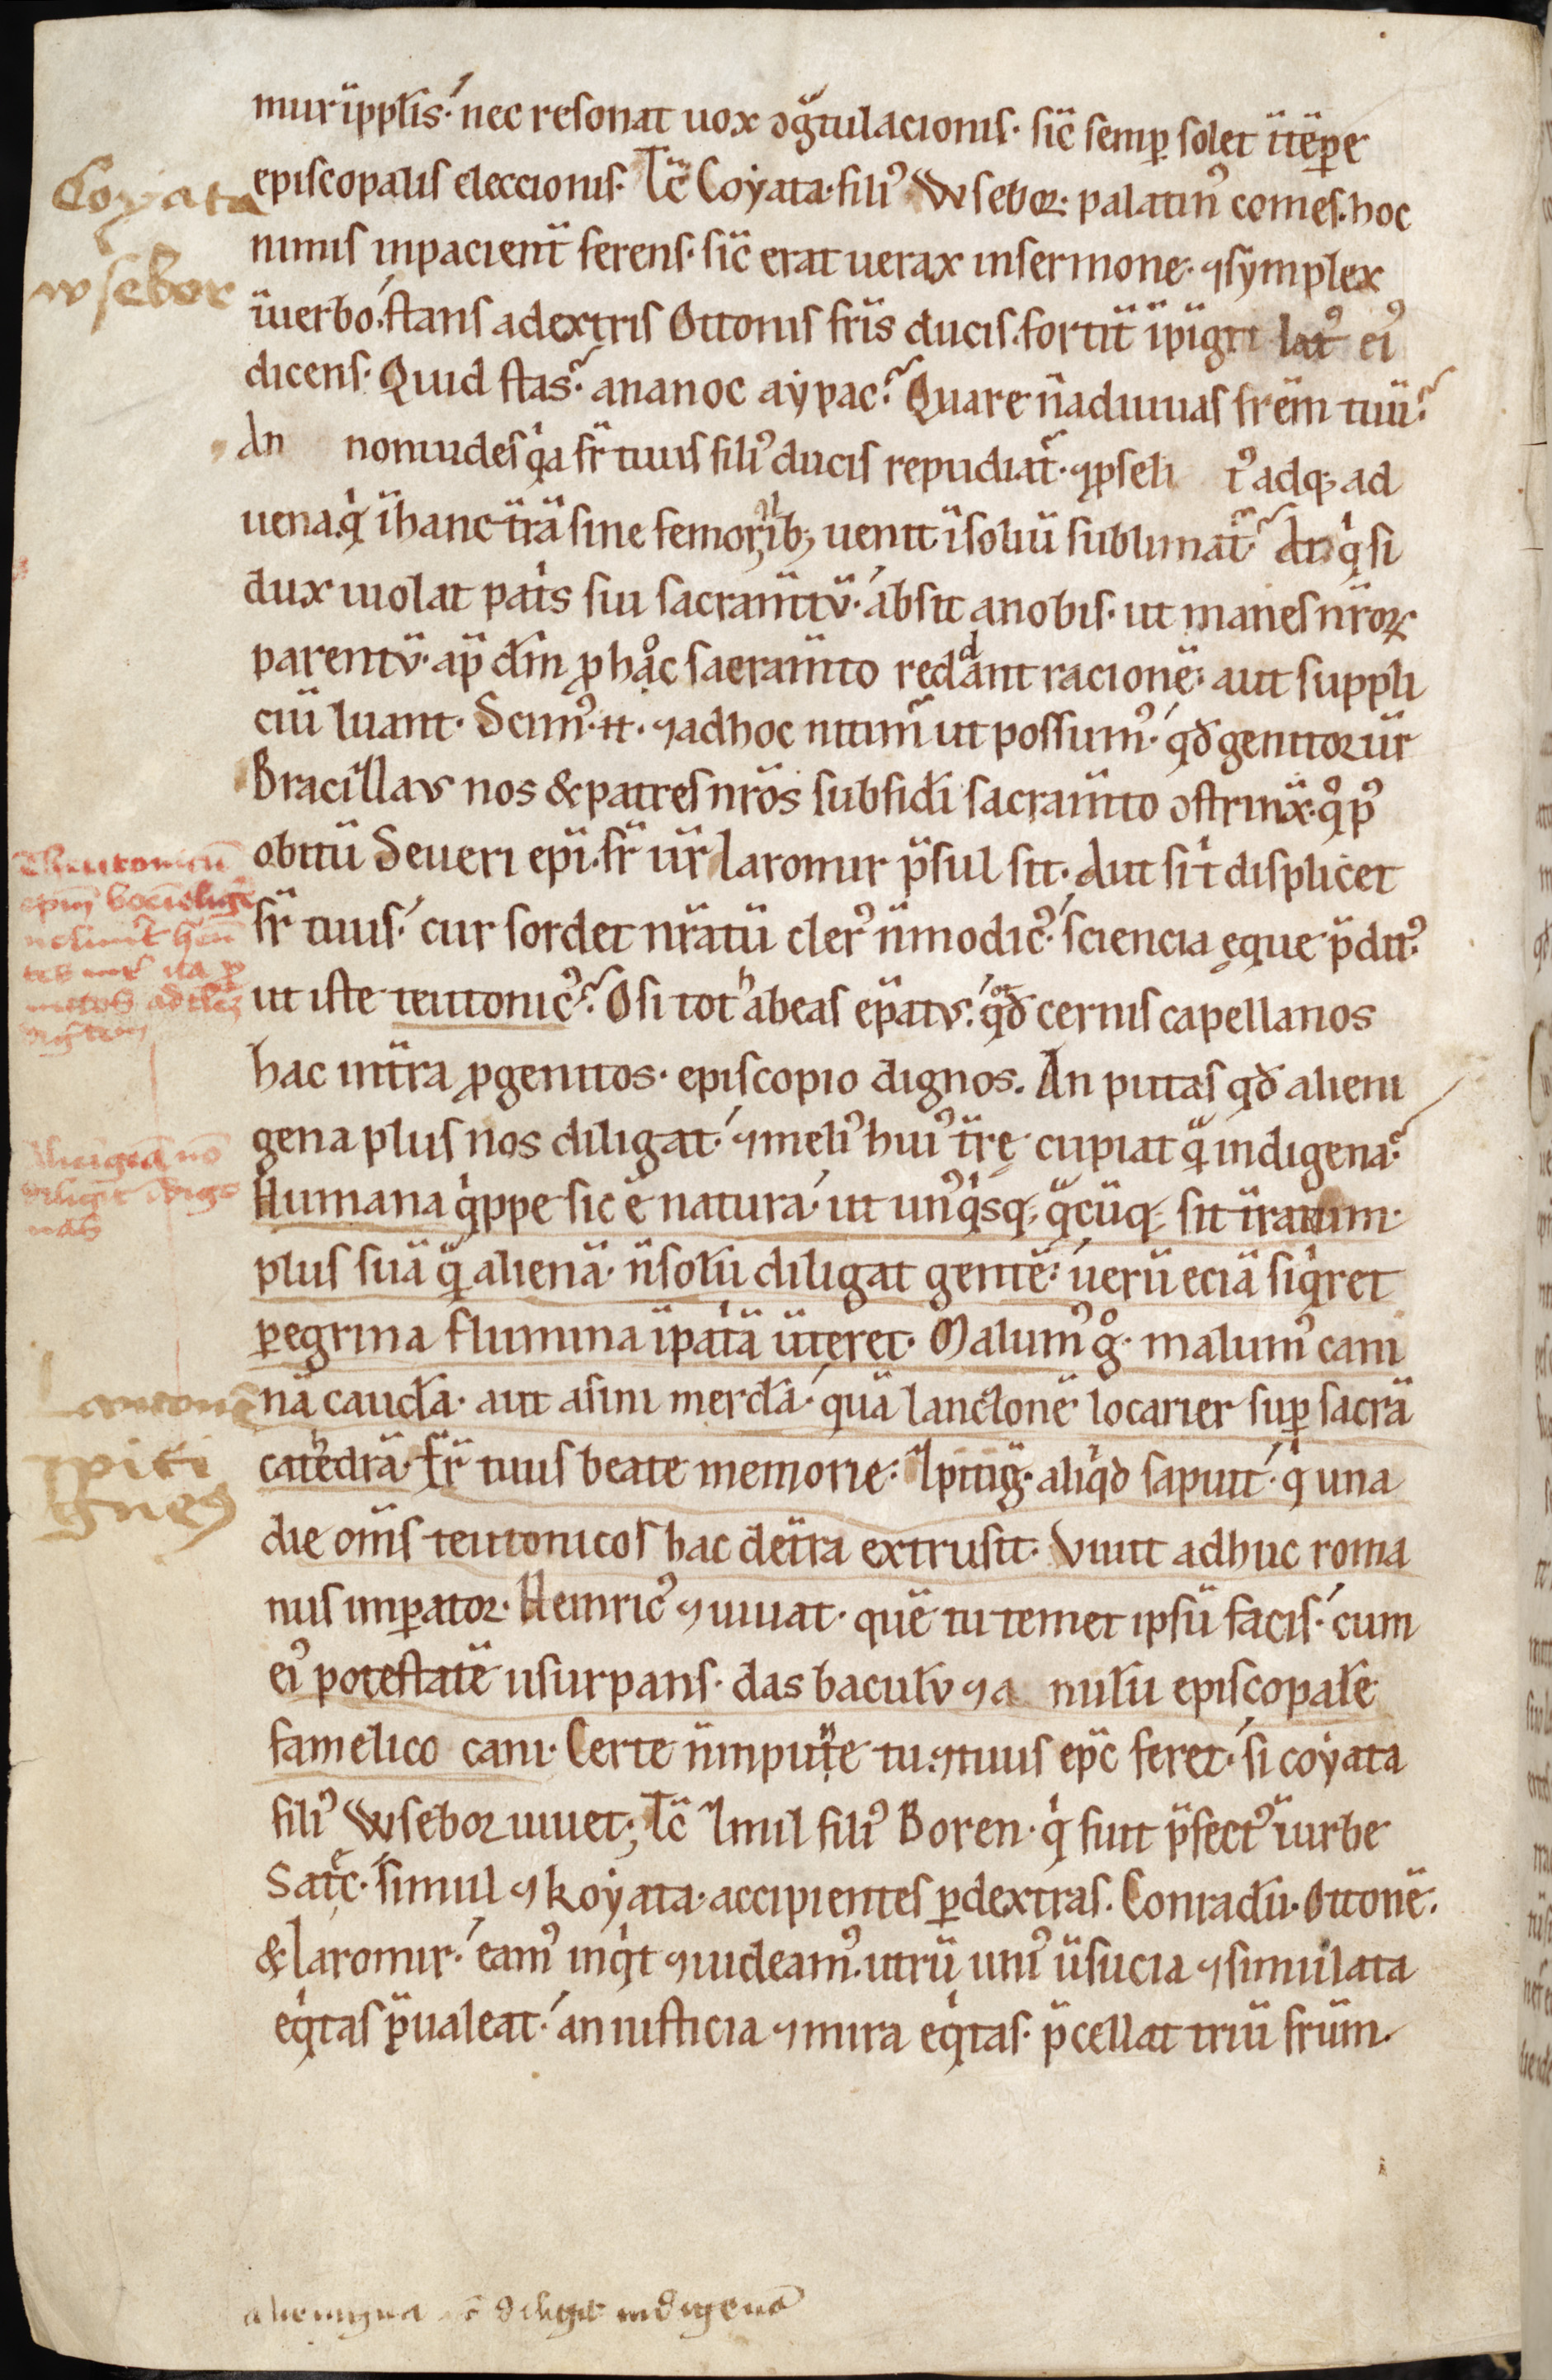 mur ïpplis. nec resonat uox ↄgͣtulacionis. sic̄ semꝑ solet ïtëꝑe
episcopalis eleccionis. Tc̄ Coyata. fili᷒ Wsebor. palatin᷒ comes. hoc
nimis inpacient̄ ferens. sic̄ erat uerax insermone. ⁊symplex
ïuerbo. stans adextris Ottonis fr̄is ducis. fortit̄ ïpïgit lat᷒ ei᷒
dicens. Quid stas? ananoc aypac? Quare n̄adiuuas fr̄em tuū?
An nonuides qͥa fr̄ tuus fili᷒ ducis repudiat̄. ⁊ꝓseli t᷒ adq; ad
uena. qͥ ïhanc tr̄ā sine femorib; uenit ïsoliū sublimat̄? An qͥ si
dux uiolat pat̄s sui sacram̄tū. absit anobis. ut manes nr̄oꝝ
parentū. ap̄ dm̄ ꝓ hac sacram̄to reddant racionē. aut suppli
ciū luant. Scim᷒.
⁊adhoc nitim̄ ut possum᷒. qd̄ genitor ur̄
Bracillaus nos & patres nr̄os subfidi sacram̄to ↄstrinx̄. qͦ p᷒
obitū Seueri ep̄i. fr̄ ur̄ Iaromir p̄sul sit. Aut si tͥ displicet
fr̄ tuus. cur sordet nr̄atū cler᷒ n̄modic᷒. sciencia ęque p̄dit᷒.
ut iste teutonic᷒? O si tot habeas ep̄atus. qͦt cernis capellanos
hac intr̄a ꝓgenitos. episcopio dignos. An putas qd̄ alieni
gena plus nos diligat. ⁊meli᷒ hui᷒ tr̄ę cupiat qͣ̄ indigena?
Humana qͥppe sic ē natura. ut un᷒qͥsq; qͣcūq; sit tr̄arum.
plus suā qͣ̄ alienā. n̄solū diligat gentē. uerū eciā siqͥret
ꝑegrina flumina ïpat̄ā ūteret. Malum᷒ gͦ. malum᷒ cani
nā caudā. aut asini merdā. quā lanczonē locarier suꝑ sacrā
catedrā. Fr̄ tuus beate memorie. Ipitig̅. aliqͥd sapuit. qͥ una
die om̄s teutonicos hac detr̄a extrusit. Viuit adhuc roma
nus imꝑator. Heinric᷒ ⁊uiuat. quē tu temet ipsū facis. cum
ei᷒ potestatē usurpans. das baculū ⁊a nulū episcopalē
famelico cani. Certe n̄inpune tu. ⁊tuus ep̄c feret. si coyata
fili᷒ Wsebor uiuet; Tc̄ Imil fili᷒ Boren. qͥ fuit p̄fect᷒ ïurbe
Satc. simul ⁊ koyata. accipientes ꝑdextras. Conradū. Ottonē.
& Iaromir. eam᷒ inqͥt ⁊uideam᷒. utrū uni᷒ ūsucia ⁊simulata
eqͥtas p̄ualeat. an iusticia ⁊mira eqͥtas. p̄cellat triū fr̄um.
Coyata
wsebor
lanczonē
ipiti
gnes
alienigena nō diligit indigenā